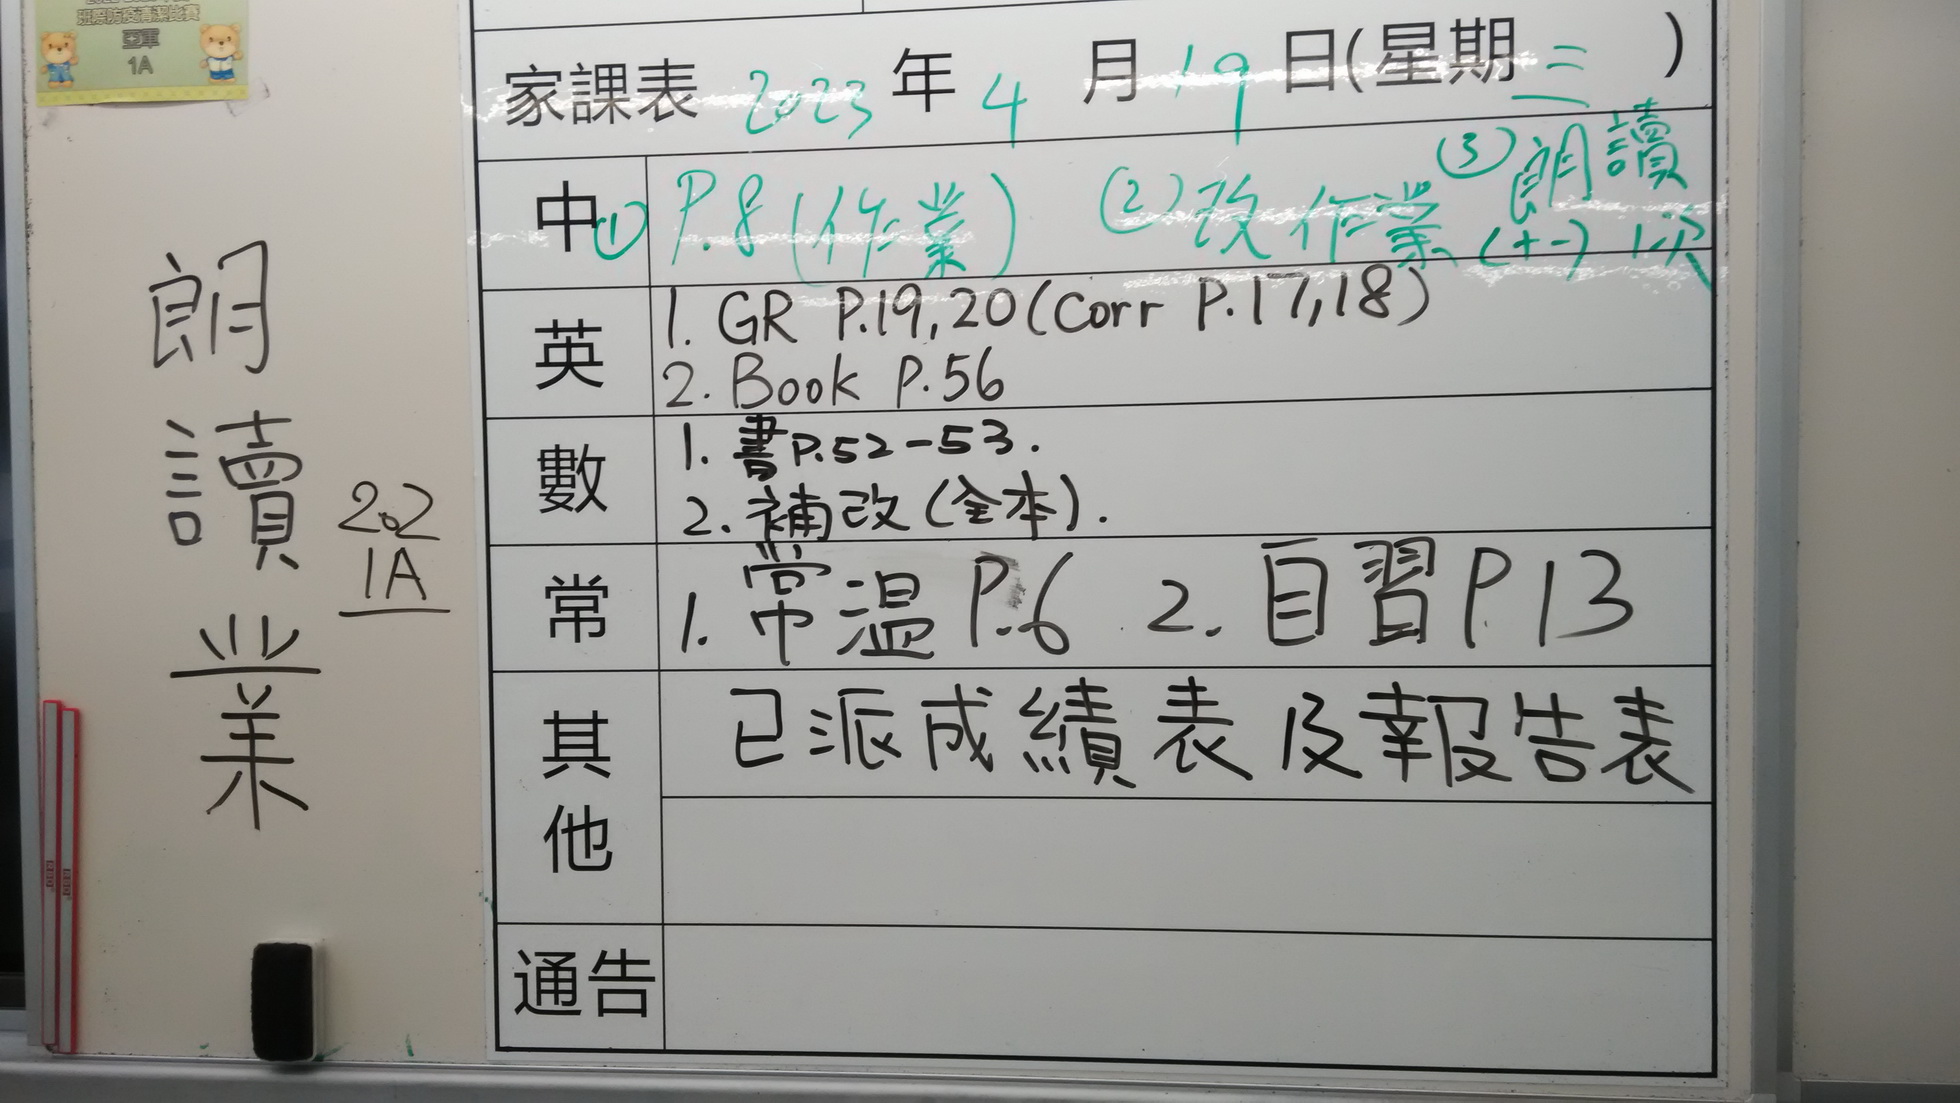 班際防疫清潔比賽
亞軍
1A
家課表 2023 年 4 月 19 日(星期三)
中 ① P.8(作業) ② 改作業 ③ 朗讀
(十一) 1次
英 1. GR P.19,20(Corr P.17,18)
2. Book P.56
數 1. 書P.52-53.
2. 補改(全本).
常 1. 常温P.6 2. 自習P.13
其他 已派成績表及報告表
通告
朗讀業
202
1A